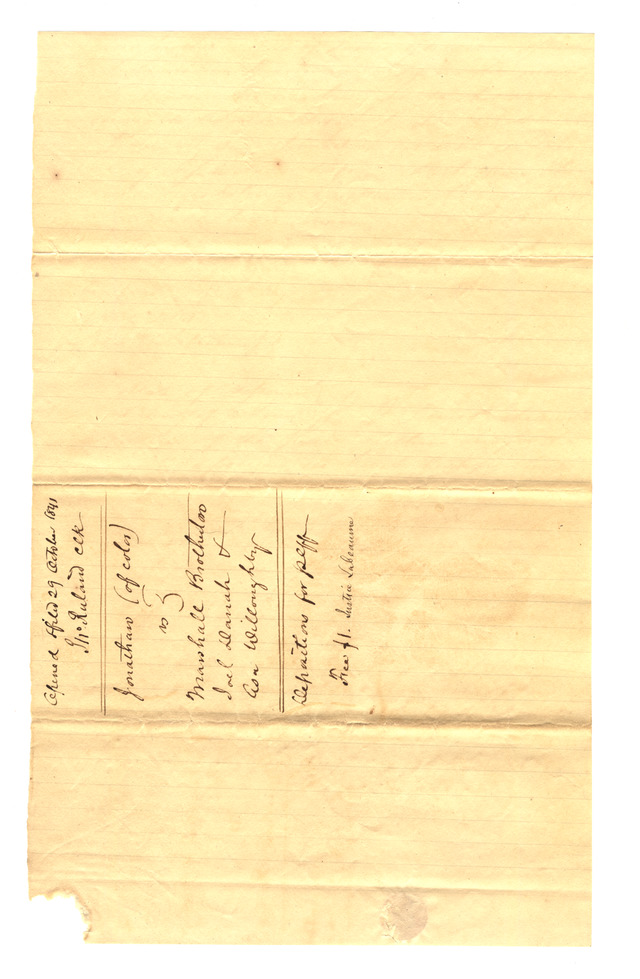 Opened & filed 29 October 1841
Jno Ruland Clk
Jonathan (of color)
vs
Marshall Brotherton
Joel Danah &
Asa Willoughby
Depositions for plff
Fees $1. Justice Labeaume